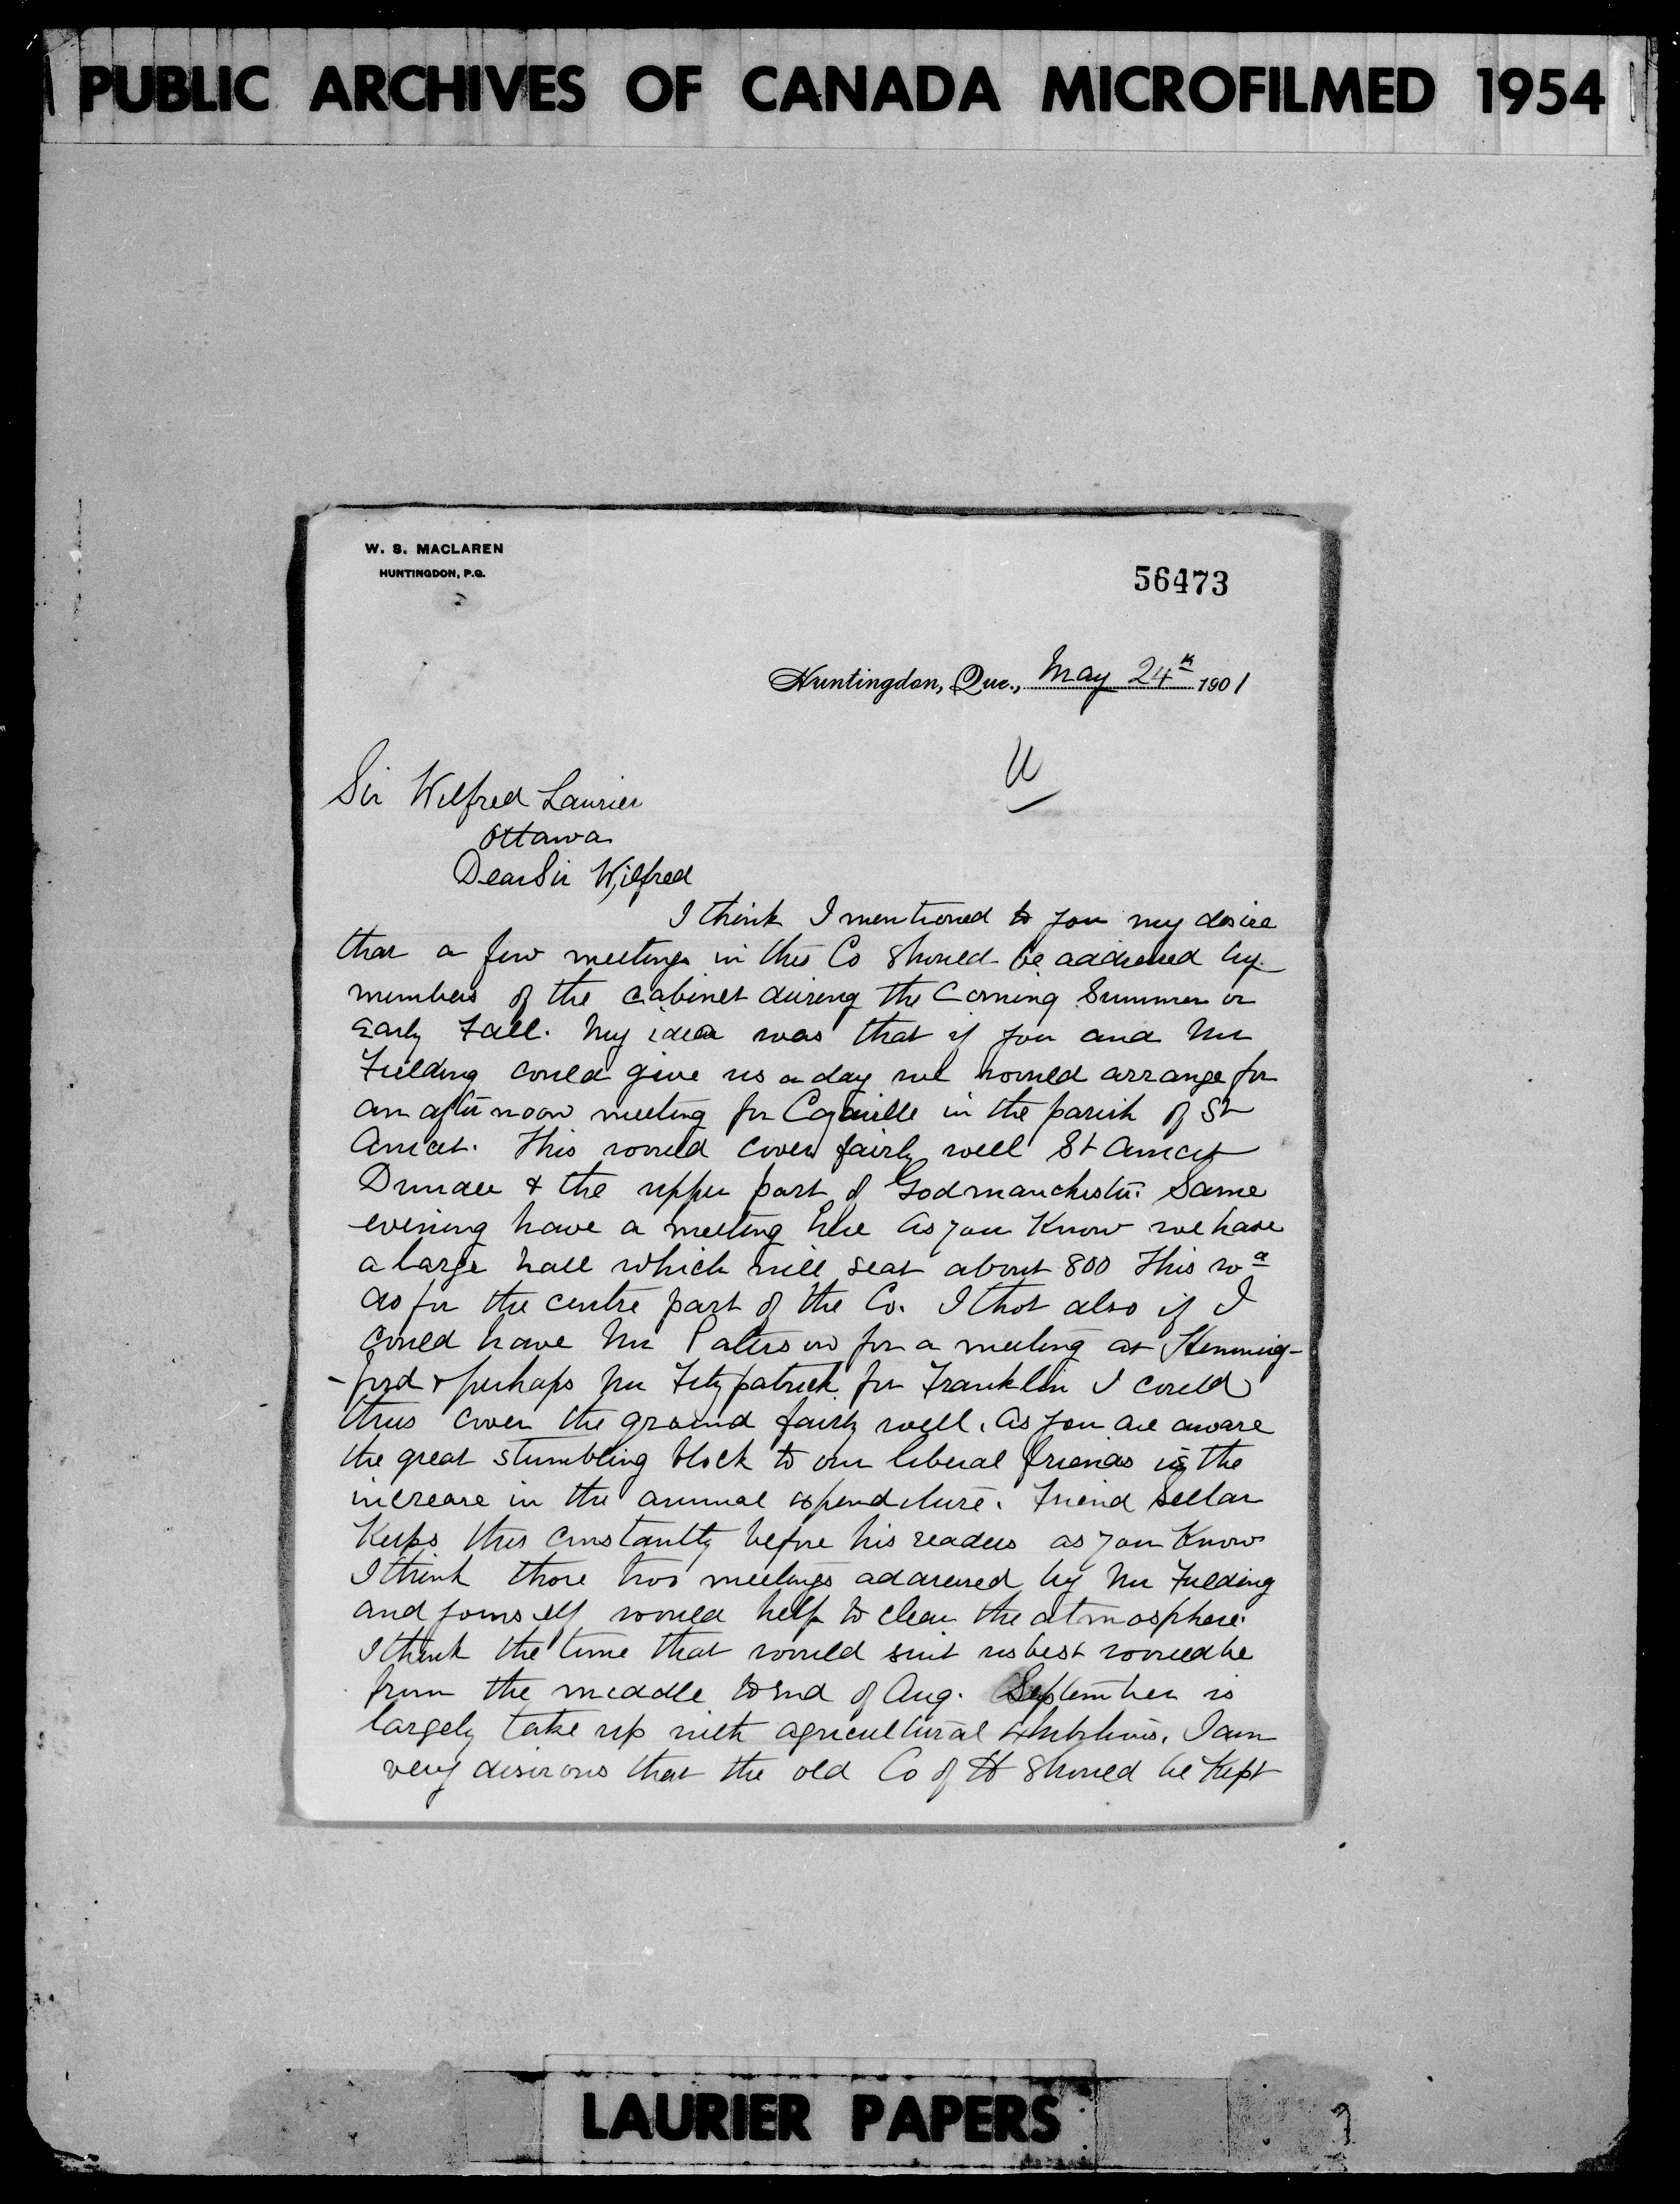 PUBLIC ARCHIVES OF CANADA MICROFILMED 1954
W. S. MACLAREN
HUNTINGDON, P.Q.
56473
Huntingdon, Que., May 24th 1901
Sir Wilfred Laurier
Ottawa
Dear Sir Wilfred
I think I mentioned to you my desire
that a few meetings in this Co should be addressed by
members of the cabinet during the Coming Summer or
Early Fall. My idea was that if you and Mr
Fielding could give us a day we would arrange for
an afternoon meeting for Cazaville in the parish of St
Anicet. This would cover fairly well St Anicet
Dundee & the upper part of Godmanchester. Same
evening have a meeting here As you Know we have
a large hall which will seat about 800 This wd
do for the centre part of the Co. I thot also if I
could have Mr Paterson for a meeting at Hemming-
-ford & perhaps Mr Fitzpatrick for Franklin I could
thus cover the ground fairly well. As you are aware
the great stumbling block to our liberal friends is the
increase in the annual expenditure. Friend Sellar
Keeps this constantly before his readers as you Know
I think those two meetings addressed by Mr Fielding
and yourself would help to clear the atmosphere.
I think the time that would suit us best would be
from the middle to End of Aug. September is
largely take up with agricultural exhibitions. I am
very desirous that the old Co of H should be Kept
LAURIER PAPERS